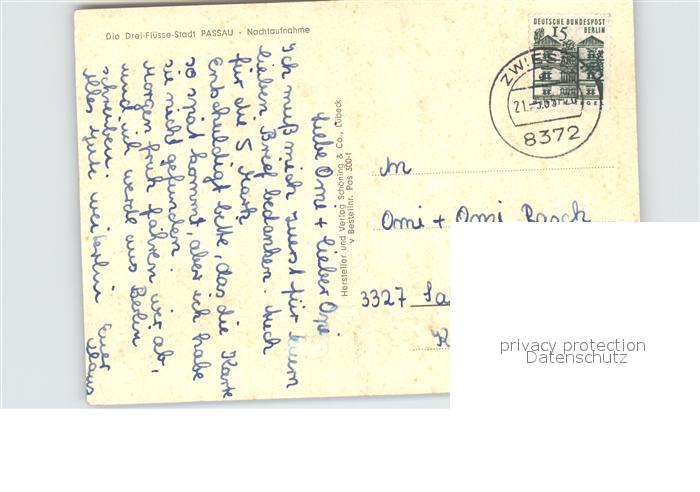 Die Drei-Flüsse-Stadt PASSAU - Nachtaufnahme
Liebe Omi + lieber Opi
Ich muß mich zuerst für Euern
lieben Brief bedanken. Auch
für die 5 Mark.
Entschuldigt bitte, das die Karte
so spät kommt, aber ich habe
sie nicht gefunden.
Morgen früh fahren wir ab,
und ich werde aus Berlin
schreiben.
Alles Gute weiterhin Euer
Klaus
Hersteller und Verlag Schöning & Co., Lübeck
v Bestellnr. Pas 300-f
DEUTSCHE BUNDESPOST
BERLIN
15
ZWIESEL
8372
An
Omi + Opi Rasch
3327 Sa
K
privacy protection
Datenschutz